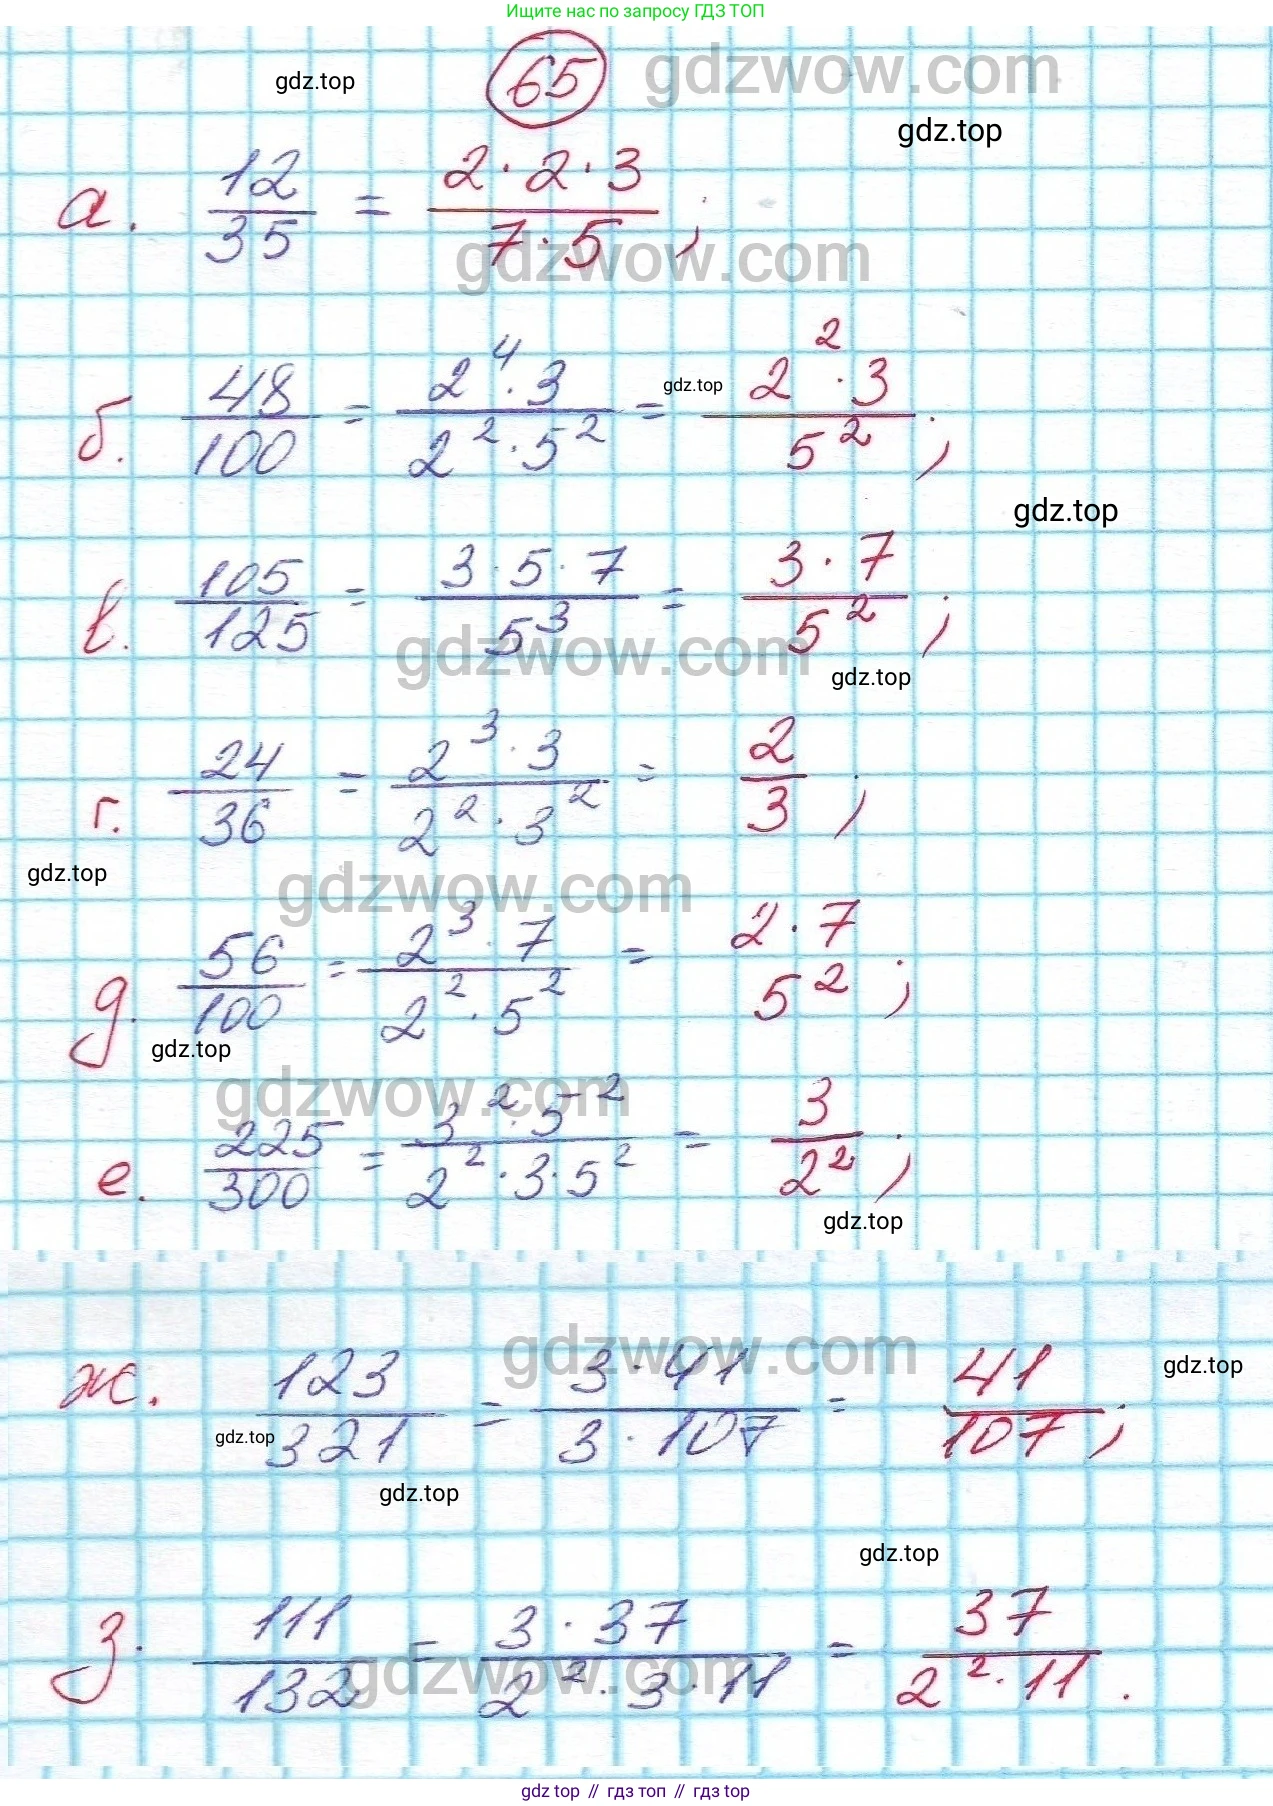 Ищите нас по запросу ГДЗ ТОП
65
gdzwow.com
gdz.top
gdz.top
а. 12/35 = 2·2·3/7·5;
gdzwow.com
б. 48/100 = 2⁴·3/2²·5² = 2²·3/5²;
gdz.top
gdz.top
в. 105/125 = 3·5·7/5³ = 3·7/5²;
gdzwow.com
gdz.top
г. 24/36 = 2³·3/2²·3² = 2/3;
gdz.top
gdzwow.com
д. 56/100 = 2³·7/2²·5² = 2·7 5²;
gdz.top
gdzwow.com
е. 225/300 = 3²·5²/2²·3·5² = 3/2²;
gdz.top
gdzwow.com
ж. 123/321 = 3·41/3·107 = 41/107;
gdz.top
gdz.top
gdz.top
gdz.top
з. 111/132 = 3·37/2²·3·11 = 37/2²·11.
gdzwow.com
gdz top // гдз топ // гдз top